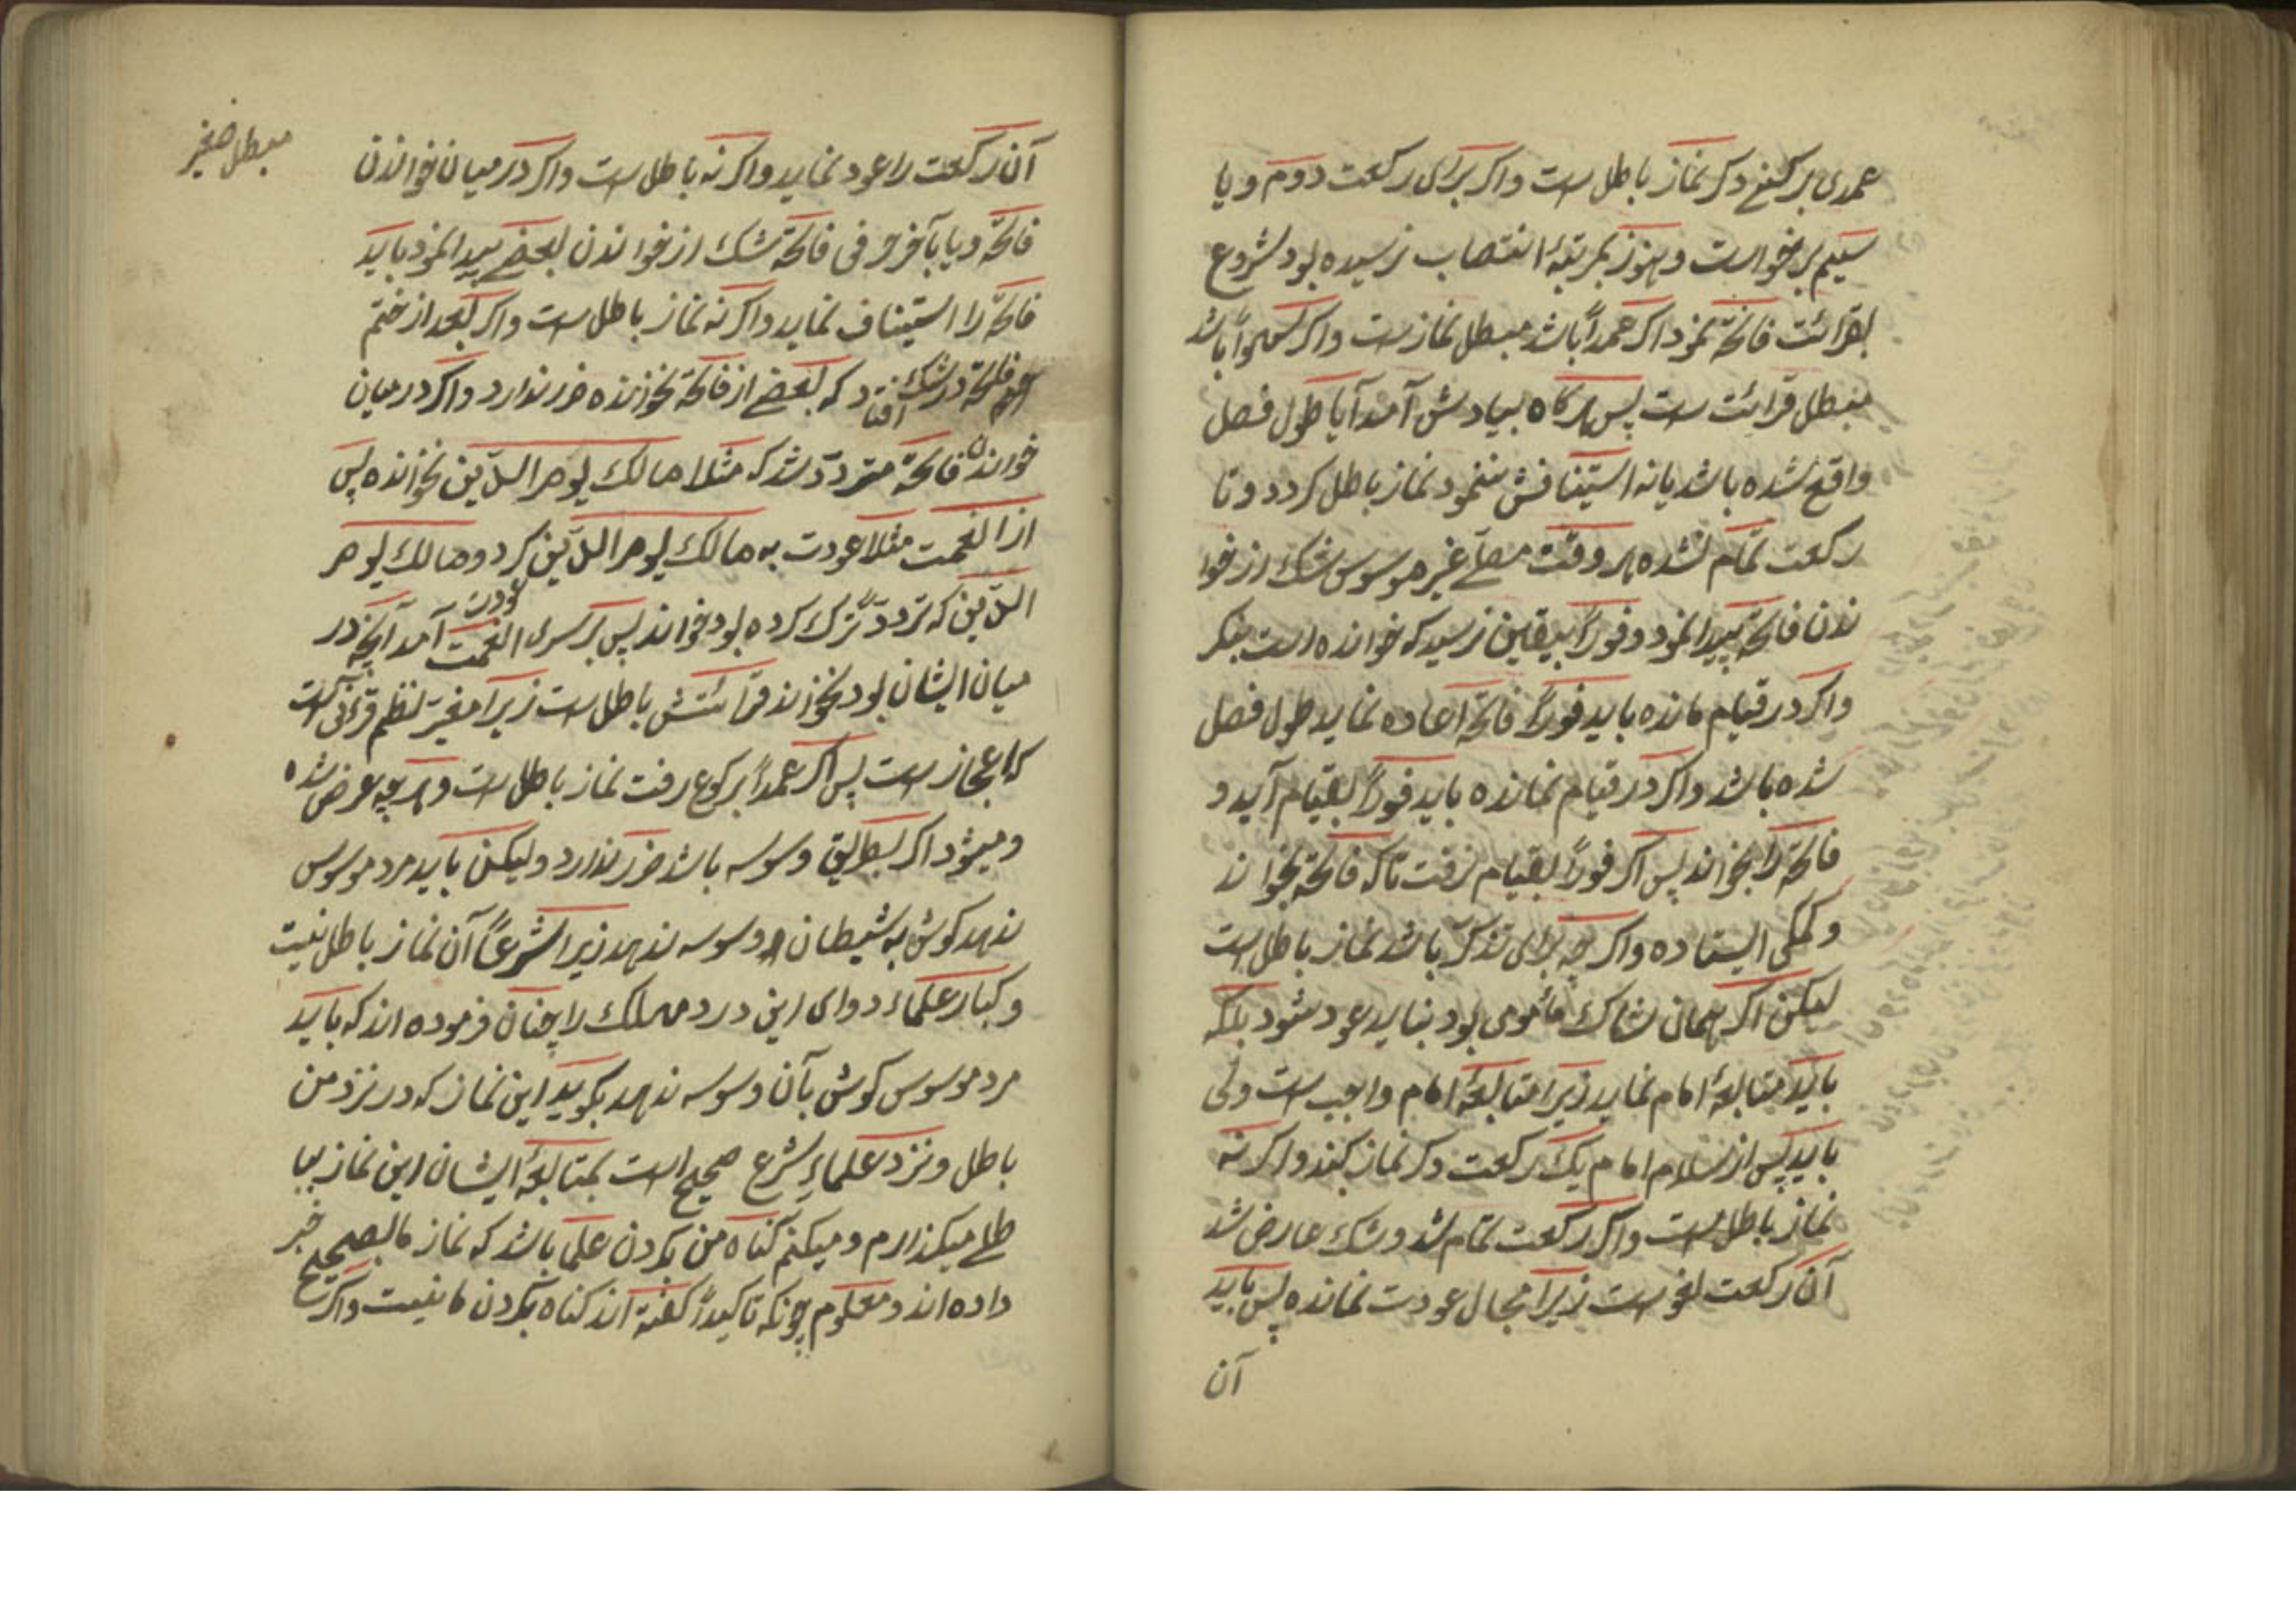 عمدی بر رکنی دکر نماز باطل است واکر برای رکعت دوم ویا
سیم برخواست وهنوز بمرتبهٔ انتصاب نرسیده بود شروع
بقرائت فاتحّه نمود اکر عمداً باشد مبطل نماز است واکر سهواً باشد
مبطل قرائت است پس هرکاه بیادش آمد آیا طول فصل
واقع شده باشد یا نه استینافش ننمود نماز باطل کردد وتا
رکعت تمّام نشده هر وقت مصلّے غیر موسوس شک از خوا
ندن فاتحّه پیدا نمود وفوراً بیقین نرسید که خوانده است بنکر
واکر در قیام مانده باید فوراً فاتحّه اعاده نماید طول فصل
شده باشد واکر در قیام نمانده باید فوراً بقیام آید و
فاتحّه را بخواند پس اکر فوراً بقیام نرفت تاکه فاتحّه بخواند
وکمکی ایستاده واکر چه برای تذکّر باشد نماز باطل است
لیکن اکر همان شاک مأمومی بود نباید عود شود بلکه
باید متابعهٔ امام نماید زیرا متابعهٔ امام واجب است ولی
باید پس از سلام امام یک رکعت دکر نماز بکند واکرنه
نماز باطل است واکر رکعت تمّام شد وشک عارض شد
آن رکعت لغو است زیرا مجال عودت نمانده پس باید
آن
مبطل صغیر
آن رکعت را عود نماید واکرنه باطل است واکر در میان خواندن
فاتحّه ویا بآخر حرفی فاتحّه شک از خواندن بعضے پیدا نمود باید
فاتحّه را استیناف نماید واکرنه نماز باطل است واکر بعد از ختم
فاتحة در شک افتاد که بعضے از فاتحّه نخوانده ضرر ندارد واکر در میان
خواندن فاتحّه متردّد شد که مثلا مالک یوم الدّین نخوانده پس
از انعمت مثلا عودت به مالک یوم الدّین کرد ومالک یوم
الدّین که تردّد ترک کرده بود خواند پس بر سر انعمت عودت آمد آنچه در
میان ایشان بود نخواند قرائتش باطل است زیرا مغیر نظم قرآنی است
که اعجاز است پس اکر عمداً برکوع رفت نماز باطل است وهر چه عرض شده
ومیشود اکر بطریق وسوسه باشد ضرر ندارد ولیکن باید مرد موسوس
ندهد کوش به شیطان وسوسه ندهد زیرا شرعاً آن نماز باطل نیست
وکبار علماء دوای این درد مهلک را چنان فرموده اند که باید
مرد موسوس کوش بآن وسوسه ندهد بکوید این نماز که در نزد من
باطل ونزد علماءِ شرع صحیح است بمتابعهٔ ایشان این نماز ببا
طلے میکذارم ومیکنم کناه من بکردن علما باشد که نماز ما بصحیح خبر
داده اند ومعلوم چونکه تاکیداً کفته اند کناه بکردن ما نیست واکر